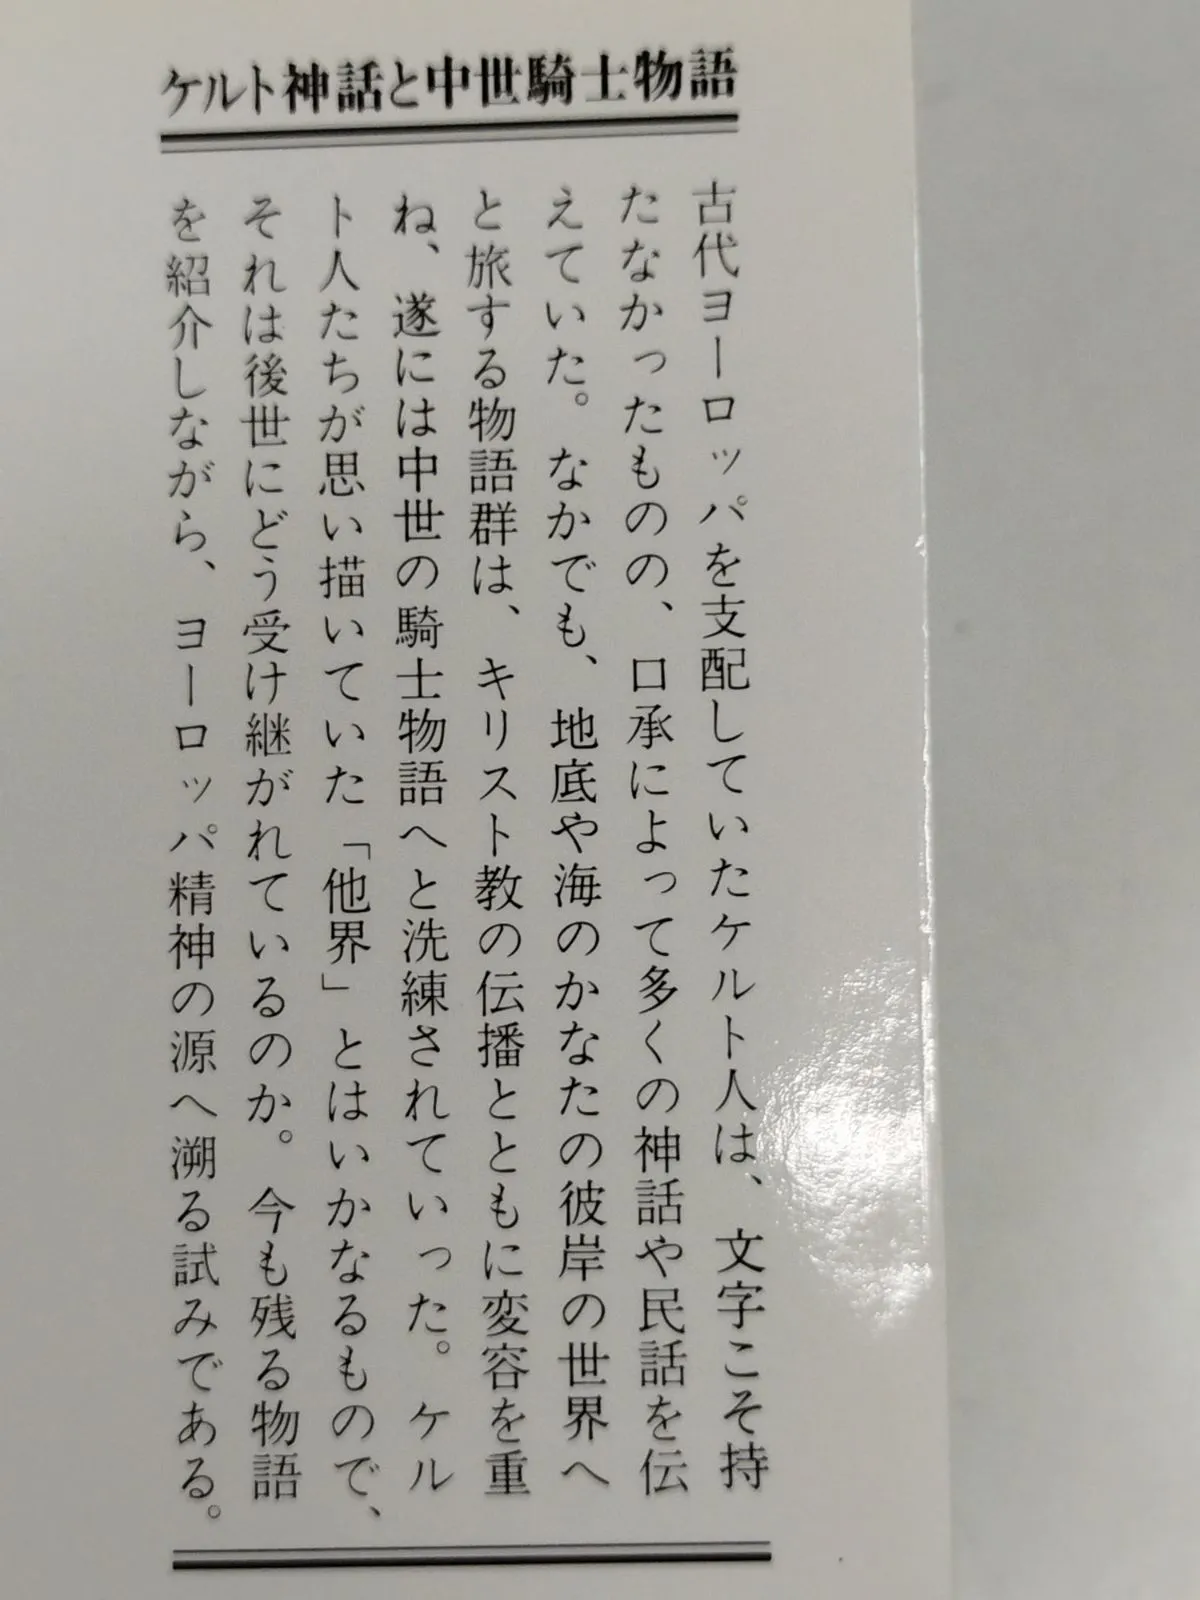 ケルト神話と中世騎士物語
古代ヨーロッパを支配していたケルト人は、文字こそ持
たなかったものの、口承によって多くの神話や民話を伝
えていた。なかでも、地底や海のかなたの彼岸の世界へ
と旅する物語群は、キリスト教の伝播とともに変容を重
ね、遂には中世の騎士物語へと洗練されていった。ケル
ト人たちが思い描いていた「他界」とはいかなるもので、
それは後世にどう受け継がれているのか。今も残る物語
を紹介しながら、ヨーロッパ精神の源へ溯る試みである。